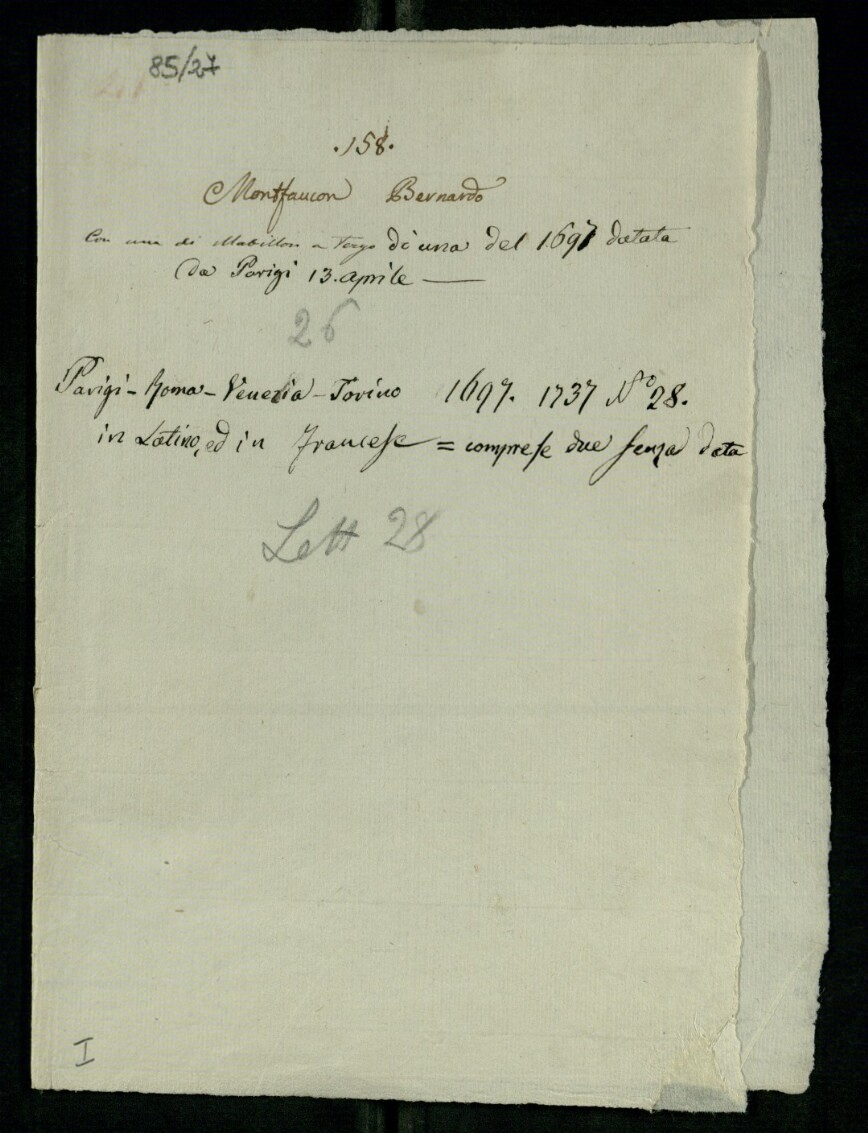 85/27
.158.
Montfaucon Bernardo
Con una di Mabillon a tergo di una del 1697 datata
da Parigi 13. aprile —
26
Parigi - Roma - Venezia - Torino 1697. 1737 N° 28.
in Latino, ed in francese = comprese due senza data
Lett 28
I